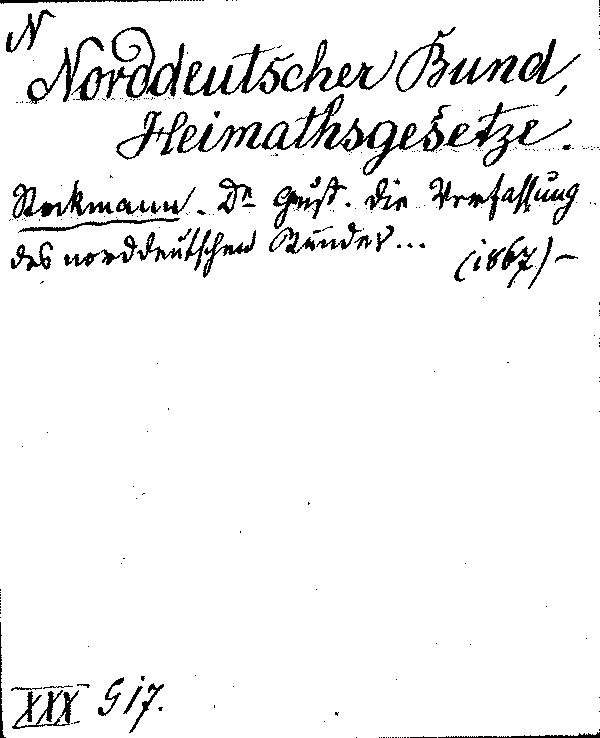 N
Norddeutscher Bund,
Heimathsgesetze.
Stockmann. Dr Gust. Die Verfassung
des norddeutschen Bundes...
(1867)–
XXX G 17.